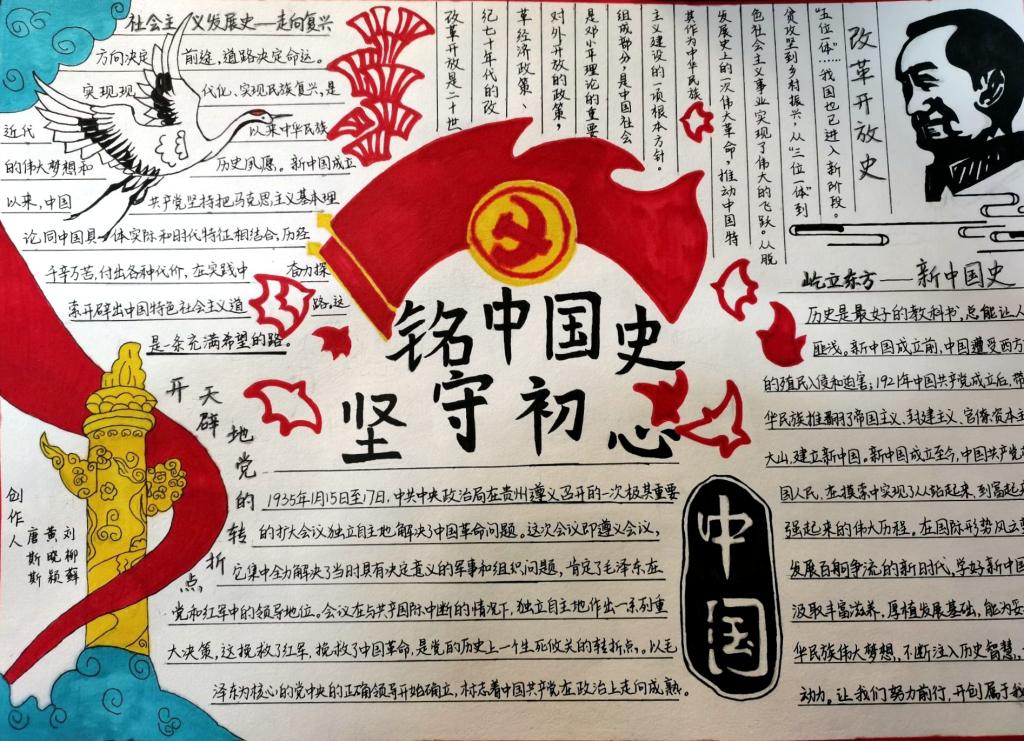 社会主义发展史——走向复兴
方向决定前途，道路决定命运。
实现现代化、实现民族复兴，是
近代以来中华民族
的伟大梦想和历史夙愿。新中国成立
以来，中国共产党坚持把马克思主义基本理
论同中国具体实际和时代特征相结合，历经
千辛万苦，付出各种代价，在实践中奋力探
索开辟出中国特色社会主义道路。这
是一条充满希望的路。
改革开放史
“五位一体”……我国也已进入新阶段。
贫攻坚到乡村振兴、从“三位一体”到
色社会主义事业实现了伟大的飞跃。从脱
发展史上的一次伟大革命，推动中国特
其作为中华民族
主义建设的一项根本方针。
组成部分，是中国社会
是邓小平理论的重要
对外开放的政策，
革经济政策、
纪七十年代的改
改革开放是二十世
铭中国史
坚守初心
屹立东方——新中国史
历史是最好的教科书，总能让人
匪浅。新中国成立前，中国遭受西方
的殖民入侵和迫害；1921年中国共产党成立后，带
华民族推翻了帝国主义、封建主义、官僚资本主
大山，建立新中国。新中国成立至今，中国共产党
国人民，在摸索中实现了从站起来、到富起来
强起来的伟大历程。在国际形势风云
发展百舸争流的新时代，学好新中国
汲取丰富滋养，厚植发展基础，能为
华民族伟大梦想，不断注入历史智慧，
动力。让我们努力前行，开创属于
开天辟地党的转折点
1935年1月15日至17日，中共中央政治局在贵州遵义召开的一次极其重要
的扩大会议独立自主地解决了中国革命问题。这次会议即遵义会议，
它集中全力解决了当时具有决定意义的军事和组织问题，肯定了毛泽东在
党和红军中的领导地位。会议在与共产国际中断的情况下，独立自主地作出一系列重
大决策，这挽救了红军，挽救了中国革命，是党的历史上一个生死攸关的转折点。以毛
泽东为核心的党中央的正确领导开始确立，标志着中国共产党在政治上走向成熟。
中国
创作人
刘柳蘚
黄晓颖
唐斯斯